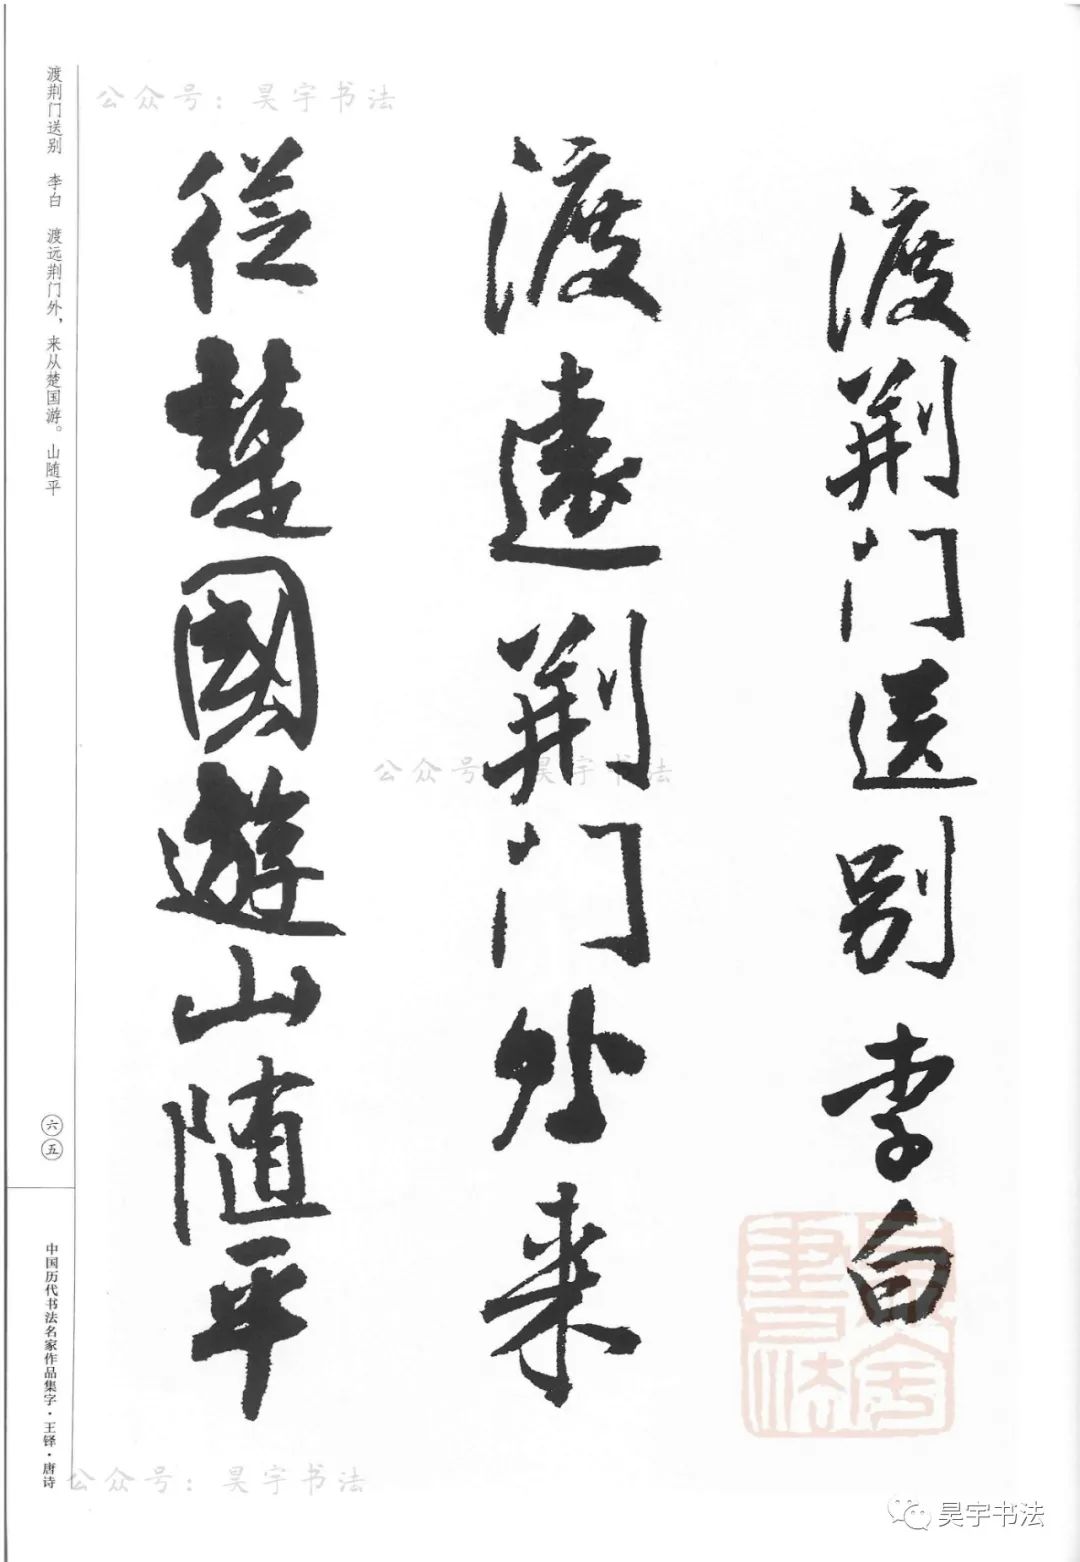 公众号：昊宇书法
渡荆门送别 李白
渡遠荆门外来
従楚國遊山随平
渡荆门送别 李白 渡远荆门外，来从楚国游。山随平
公众号 昊宇书法
六五
中国历代书法名家作品集字·王铎·唐诗
公众号：昊宇书法
昊宇书法